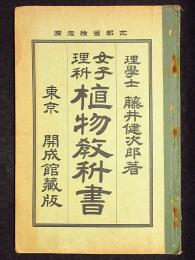 文部省檢定濟
理學士 藤井健次郎著
女子理科 植物敎科書
東京 開成館藏版